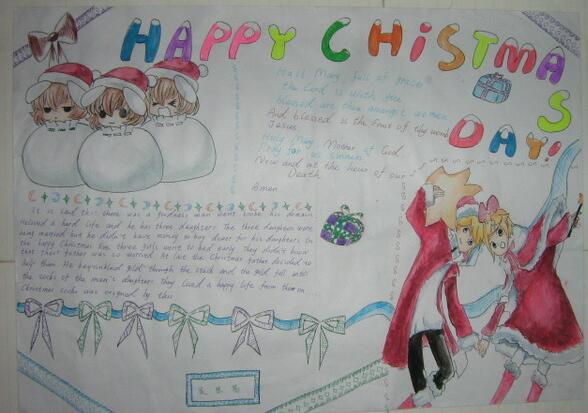 HAPPY CHISTMAS
DAY!
Hail Mary, full of grace
the Lord is with thee
blessed are thou amongst women
And blessed is the fruit of thy womb
Jesus
Holy Mary Mother of God
Pray for us sinners
Now and at the hour of our
Death
Amen
It is said that there was a kindness man went broke his domain
He lived a hard life and he has three daughters The three daughters were
being married but he didn't have money to buy dower for his daughters On
the happy Christmas Eve three girls went to bed early They didn't know
that their father was so worried At last the Christmas father decided to
help them He sprinkled gold through the and the gold fell into
the socks of the man's daughters They lived a happy life from then on
Christmas socks was origined by this